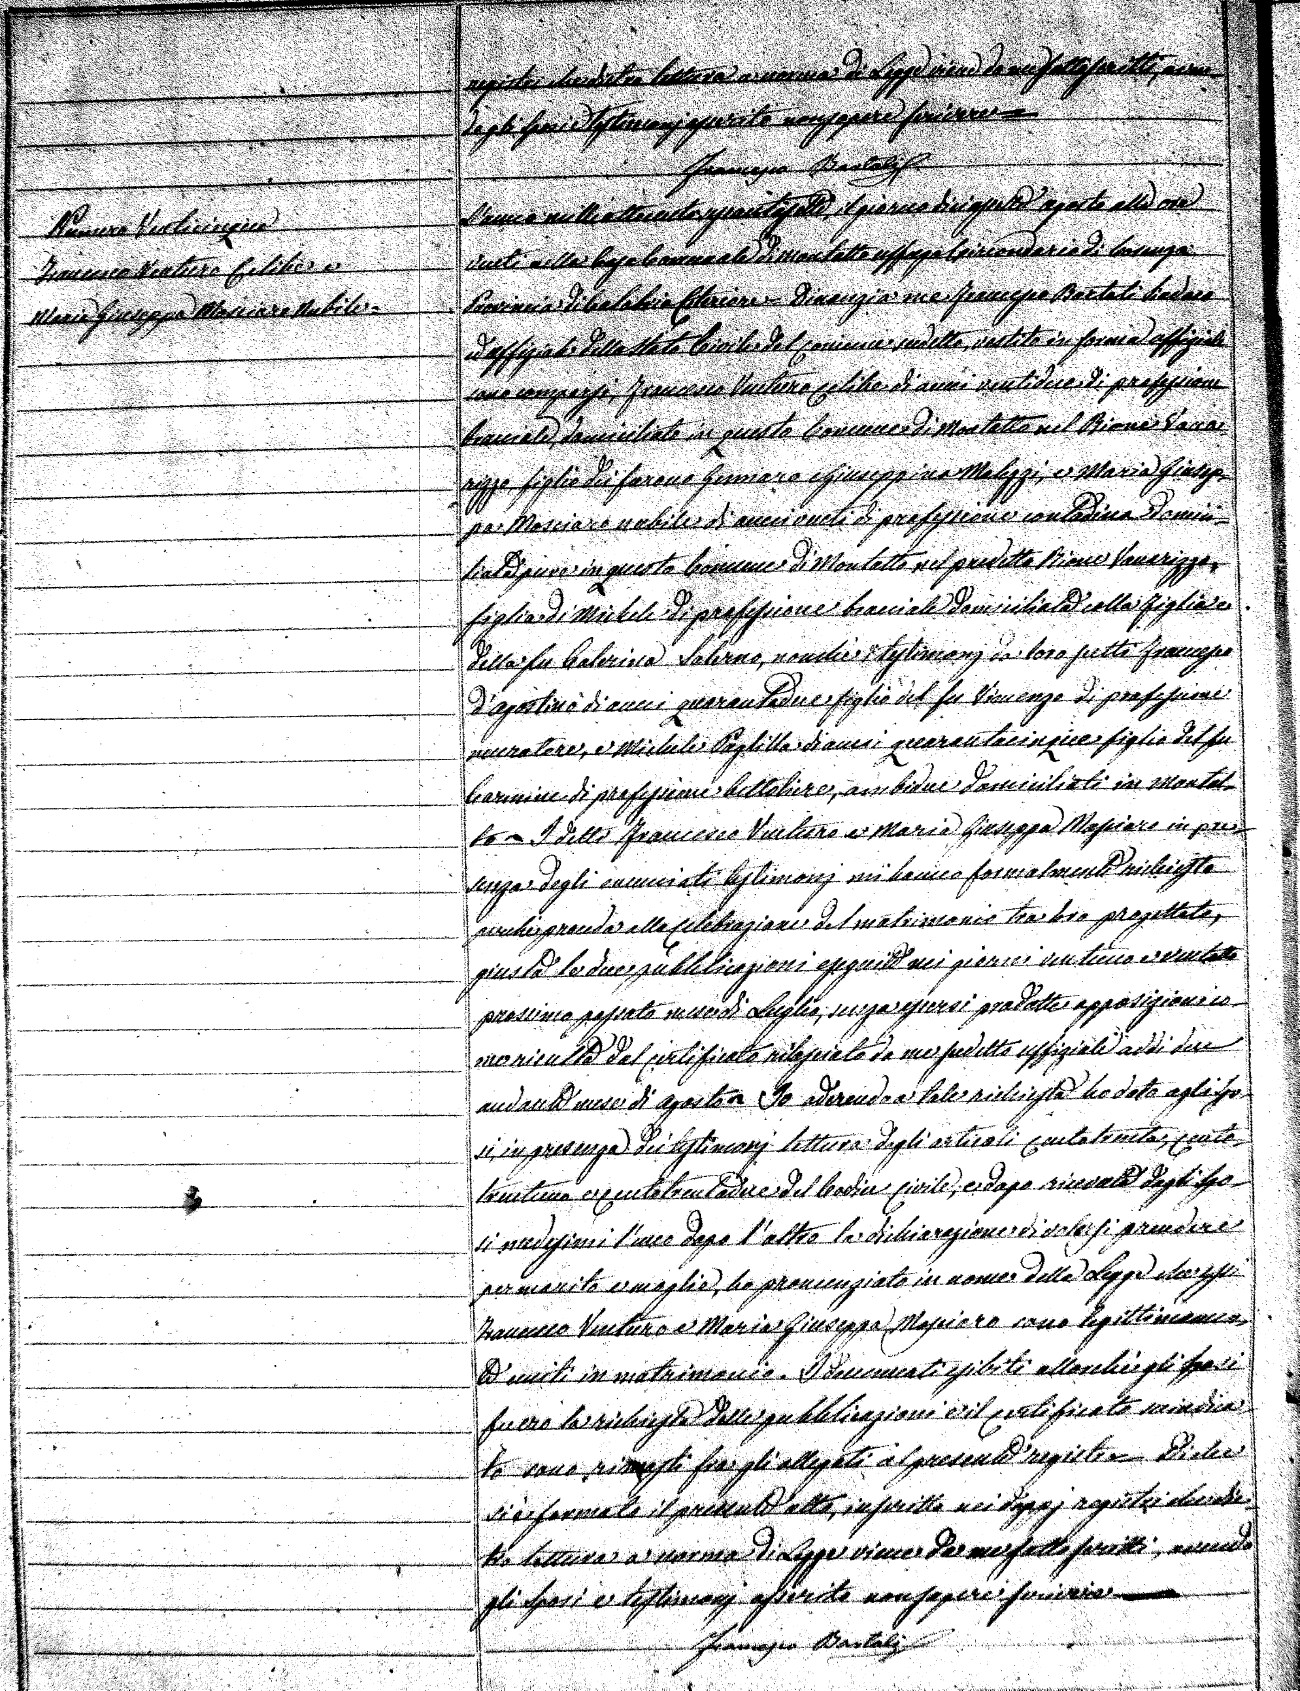 registri che dietro lettura a norma di Legge viene da me sottoscritto, avendo
degli sposi e testimonj asserito non sapere scrivere
Francesco Bartolj
Numero Venticinque
Francesco Venturo Celibe e
Maria Giuseppa Masciaro Nubile
L'anno mille ottocento, il giorno diciassette agosto alle ore
venti nella Casa Comunale di Montalto Uffugo Circondario di Cosenza
Provincia di Calabria Citeriore - Dinanzi a me Francesco Bartoli Sindaco
ed Uffiziale dello Stato Civile del Comune sudetto, vestito in forma uffiziale
sono comparsi, Francesco Venturo celibe di anni ventidue di professione
bracciale, domiciliato in questo Comune di Montalto nel Rione Vaca-
rizzo figlio dei furono Gennaro e Giuseppina Malizzi, e Maria Giusep-
pa Masciaro nubile di anni venti di professione contadina domici-
liata pure in questo Comune di Montalto nel predetto Rione Vacarizzo,
figlia di Michele di professione bracciale domiciliato colla figlia e
della fu Caterina Salerno, nonchè i testimonj da loro scelti Francesco
D'agostino di anni quarantadue figlio del fu Vincenzo di professione
muratore, e Michele Paglilla di anni quarantacinque figlio del fu
Carmine di professione bettoliere, ambidue domiciliati in Montal-
to - I detti Francesco Venturo e Maria Giuseppa Masciaro in pre-
senza degli enunciati testimonj mi hanno formalmente richiesto
perchè proceda alla celebrazione del matrimonio tra loro progettato,
giusta le due pubblicazioni eseguite nei giorni ventuno e ventotto
prossimo passato mese di Luglio, senza essersi prodotte opposizioni co-
me risulta dal certificato rilasciato da me sudetto uffiziale addì due
andante mese di agosto - Io aderendo a tale richiesta ho dato agli spo-
si, in presenza dei testimonj lettura degli articoli centotrenta, cento-
trentuno e centotrentadue del Codice Civile, e dopo ricevuta dagli spo-
si medesimi l'uno dopo l'altro la dichiarazione di volersi prendere
per marito e moglie, ho pronunziato in nome della Legge che essi
Francesco Venturo e Maria Giuseppa Masciaro sono legittimamen-
te uniti in matrimonio. I documenti esibiti allorchè gli sposi
fecero la richiesta delle pubblicazioni e il certificato suindica-
to sono rimasti fra gli allegati al presente registro - Di che
si è formato il presente atto, inscritto nei doppj registri che die-
tro lettura a norma di Legge viene da me sottoscritto, avendo
gli sposi e testimonj asserito non sapere scrivere
Francesco Bartolj